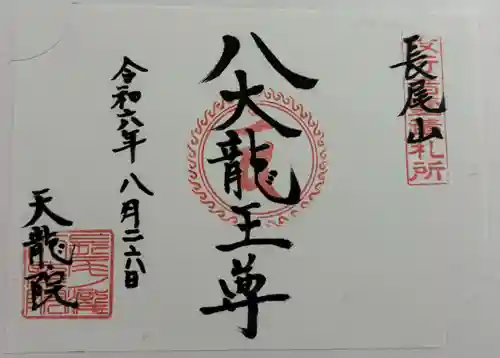 長尾山
札所
八大龍王尊
令和六年 八月二六日
天龍院